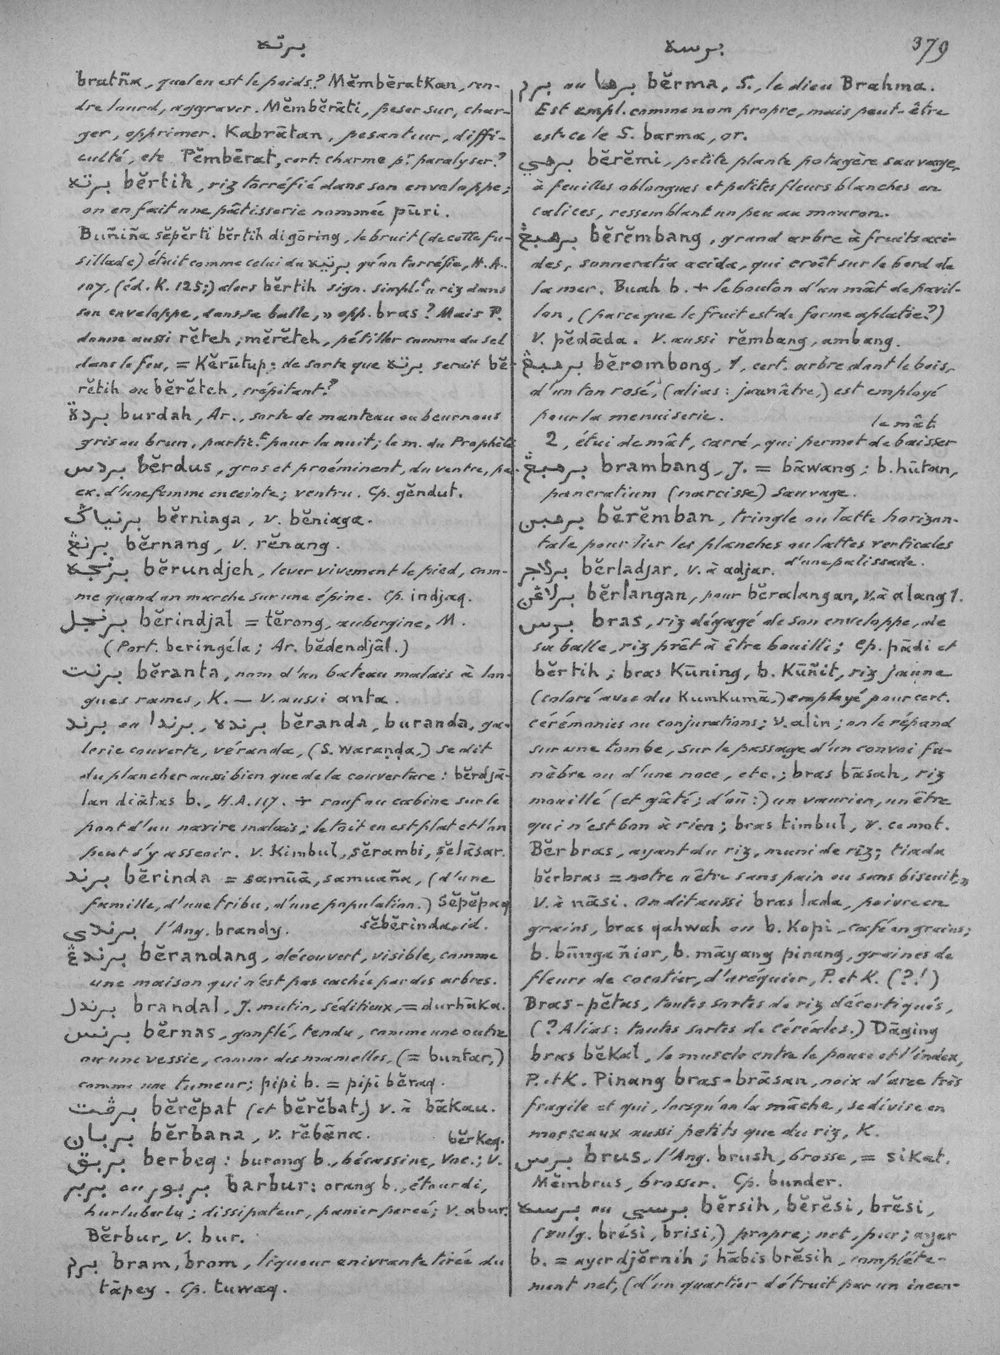 برتـه
برسـه
379
bratña, quel en est le poids? Mĕmbĕratkan, ren-
dre lourd, aggraver. Mĕmbĕrāti, peser sur, char-
ger, opprimer. Kabrātan, pesanteur, diffi-
culté, etc Pĕmbĕrat, cert. charme pr. paralyser?
برتـه bĕrtih, riz torréfié dans son enveloppe;
on en fait une pâtisserie nommée pūri.
Buñiña sĕpĕrti bĕrtih digōring, le bruit (de cette fu-
sillade) était comme celui du برتيه qu'on torréfie, H.A.
107. (éd. K. 125;) alors bĕrtih sign. simplt. "riz dans
son enveloppe, dans sa balle," opp. bras? Mais P.
donne aussi rĕteh, mĕrĕteh, pétiller comme du sel
dans le feu, = Kĕrūtup; de sorte que برته serait bĕ-
rĕtih ou bĕrĕteh, crépitant?
بردة burdah, Ar., sorte de manteau ou beurnous
gris ou brun, particr. pour la nuit; le m. du Prophète
بردس bĕrdus, gros et proéminent, du ventre, p.
ex. d'une femme enceinte; ventru. Cp. gĕndut.
برنياݢ bĕrniaga, v. bĕniaga.
برنڠ bĕrnang, v. rĕnang.
برنجه bĕrundjeh, lever vivement le pied, com-
me quand on marche sur une épine. Cp. indjaq.
برنجل bĕrindjal = tĕrong, aubergine, M.
(Port. beringéla; Ar. bĕdendjāl.)
برنت bĕranta, nom d'un bateau malais à lon-
gues rames, K. — v. aussi anta.
برند ou برندا, برنده bĕranda, buranda, ga-
lerie couverte, véranda, (S. waraṇḍa,) se dit
du plancher aussi bien que de la couverture: bĕrdjā-
lan diātas b., H.A. 117. + rouf ou cabine sur le
pont d'un navire malais; le toit en est plat et l'on
peut s'y asseoir. v. Kimbul, sĕrambi, sĕlāsar.
برند bĕrinda = samūā, samuaña, (d'une
famille, d'une tribu, d'une population.) Sĕpĕpaq
sĕbĕrinda, id.
برندي l'Ang. brandy.
برندڠ bĕrandang, découvert, visible, comme
une maison qui n'est pas cachée par des arbres.
برندل brandal, J. mutin, séditieux, = durhāka.
برنس bĕrnas, gonflé, tendu, comme une outre
ou une vessie, comme des mamelles, (= buntar,)
comme une tumeur; pipi b. = pipi bĕraq.
برڤت bĕrĕpat (et bĕrĕbat,) v. à bākau.
بربان bĕrbana, v. rĕbāna.
bĕrkeq.
بربق berbeq: burong b., bécassine, Voc.; v.
بربور ou بربر barbur: orang b., étourdi,
hurluberlu; dissipateur, panier percé; v. abur.
Bĕrbur, v. bur.
برم bram, brom, liqueur enivrante tirée du
tāpey. Cp. tuwaq.
برم ou برها bĕrma, S., le dieu Brahma.
Est empl. comme nom propre, mais peut-être
est-ce le S. barma, or.
برمي bĕrĕmi, petite plante potagère sauvage,
à feuilles oblongues et petites fleurs blanches en
calices, ressemblant un peu au mouron.
برمبڠ bĕrĕmbang, grand arbre à fruits aci-
des, sonneratia acida, qui croît sur le bord de
la mer. Buah b. + le bouton d'un mât de pavil-
lon, (parce que le fruit est de forme aplatie?)
v. pĕdāda. v. aussi rĕmbang, ambang.
برمبڠ bĕrombong, 1, cert. arbre dont le bois,
d'un ton rosé, (alias: jaunâtre,) est employé
pour la menuiserie.
le mât
2, étui de mât, carré, qui permet de baisser
برمبڠ brambang, J. = bāwang; b. hūtan,
pancratium (narcisse) sauvage.
برمبن bĕrĕmban, tringle ou latte horizon-
tale pour lier les planches ou lattes verticales
d'une palissade.
برلاجر bĕrladjar, v. à adjar.
برلاڠن bĕrlangan, pour bĕralangan, v. à alang 1.
برس bras, riz dégagé de son enveloppe, de
sa balle, riz prêt à être bouilli; Cp. pādi et
bĕrtih; bras Kūning, b. Kūñit, riz jaune
(coloré avec du KumKumā,) employé pour cert.
cérémonies ou conjurations; v. alin; on le répand
sur une tombe, sur le passage d'un convoi fu-
nèbre ou d'une noce, etc.; bras bāsah, riz
mouillé (et gâté; d'où:) un vaurien, un être
qui n'est bon à rien; bras timbul, v. ce mot.
Bĕr bras, ayant du riz, muni de riz; tiada
bĕrbras = notre "être sans pain ou sans biscuit,"
v. à nāsi. On dit aussi bras lada, poivre en
grains, bras qahwah ou b. Kopi, café en grains;
b. būnga ñior, b. māyang pinang, graines de
fleurs de cocotier, d'aréquier, P. et K. (?!)
Bras-pĕtas, toutes sortes de riz décortiqués,
(? Alias: toutes sortes de céréales.) Dāging
bras bĕkal, le muscle entre le pouce et l'index,
P. et K. Pinang bras-brāsan, noix d'arec très
fragile et qui, lorsqu'on la mâche, se divise en
morceaux aussi petits que du riz, K.
برس brus, l'Ang. brush, brosse, = sikat.
Mĕmbrus, brosser. Cp. bunder.
برسه ou برسي bĕrsih, bĕrĕsi, brĕsi,
(vulg. brési, brisi,) propre; net, pur; ayer
b. = ayer djĕrnih; hābis brĕsih, complète-
ment net, (d'un quartier détruit par un incen-